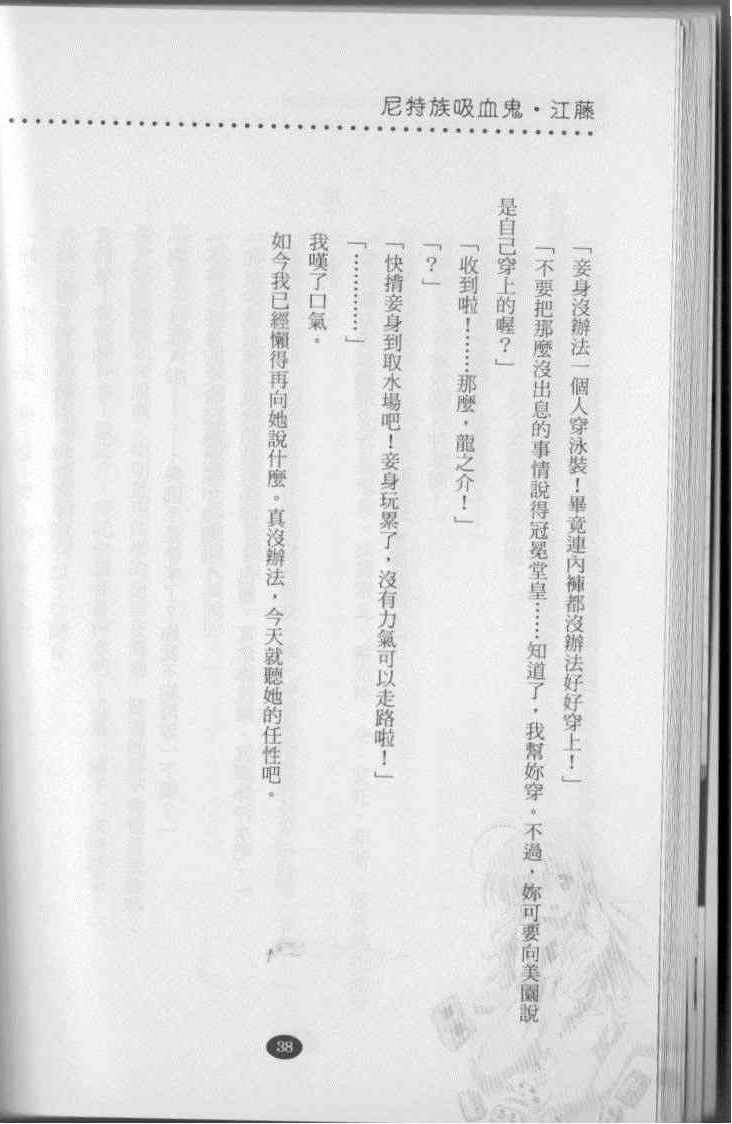 尼特族吸血鬼・江藤
「妾身沒辦法一個人穿泳裝！畢竟連內褲都沒辦法好好穿上！」
「不要把那麼沒出息的事情說得冠冕堂皇……知道了，我幫妳穿。不過，妳可要向美園說
是自己穿上的喔？」
「收到啦！……那麼，龍之介！」
「？」
「快揹妾身到取水場吧！妾身玩累了，沒有力氣可以走路啦！」
「…………」
我嘆了口氣。
如今我已經懶得再向她說什麼。真沒辦法，今天就聽她的任性吧。
38